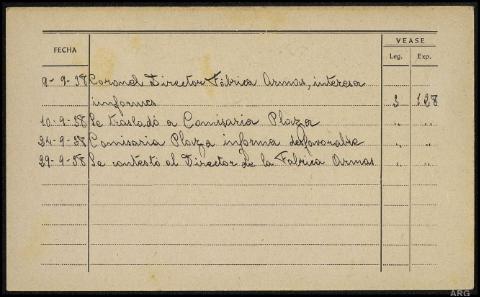 VEASE
FECHA Leg. Exp.
9-9-38 Coronel Director Fábrica Armas, interesa
informes 3 128
10-9-38 Se trasladó a Comisaria Plaza " "
24-9-38 Comisaria Plaza informa desfavorable " "
29-9-38 Se contestó al Director de la Fabrica Armas " "
ARG